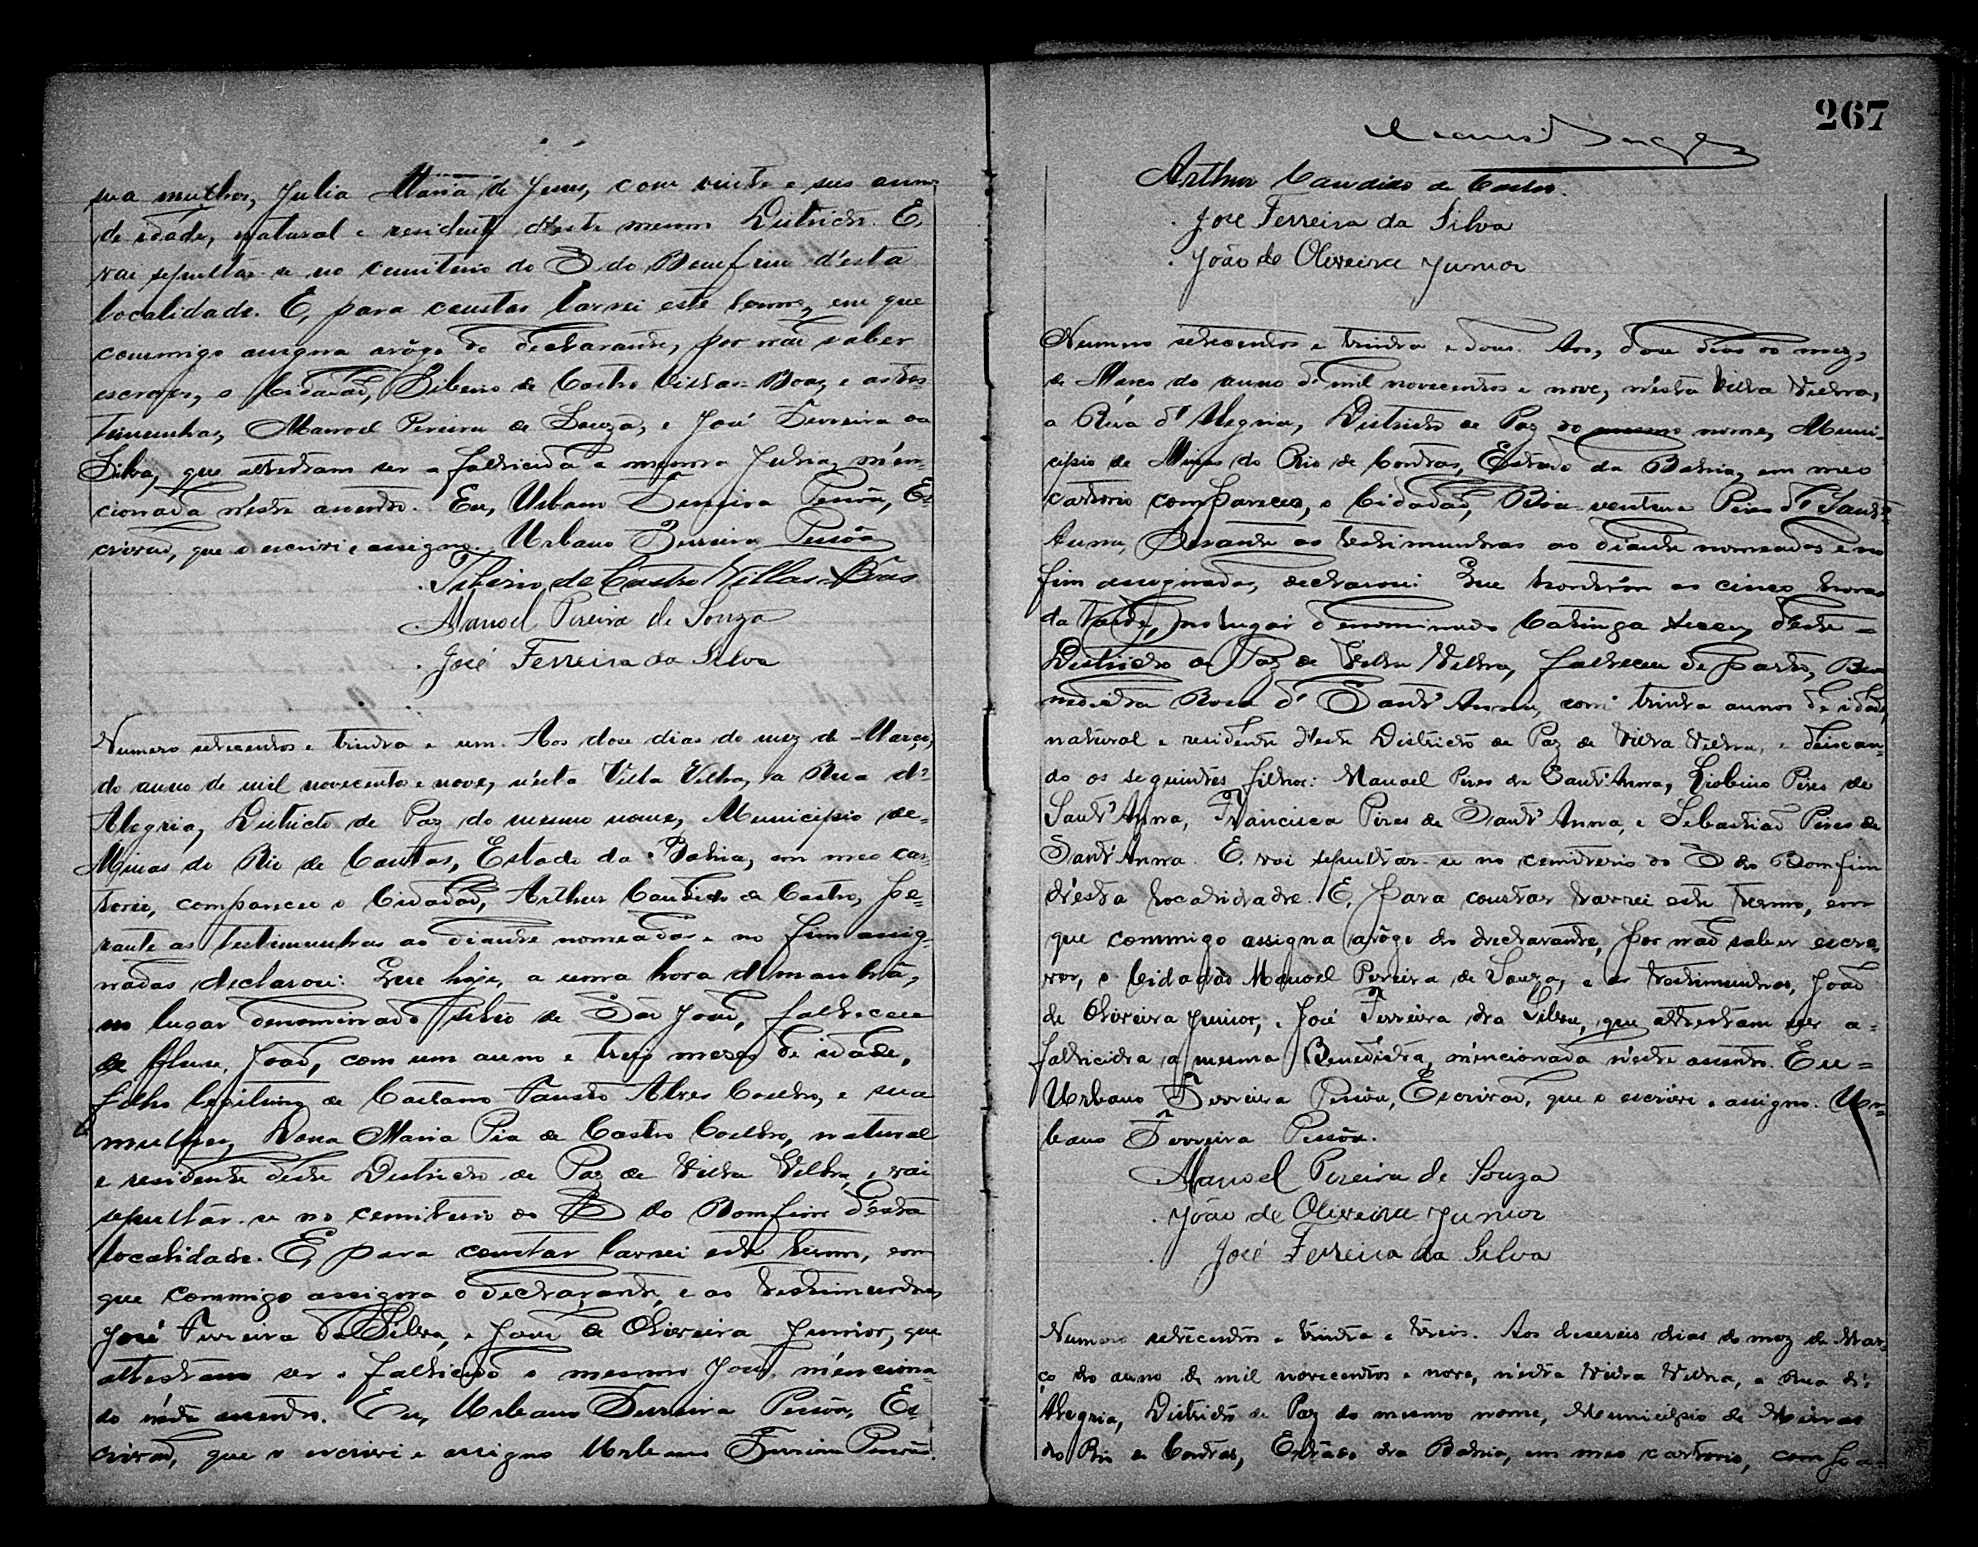 sua mulher, Julia Maria de Jesus, com vinte e seis annos
de idade, natural e residente d'este mesmo Districto. E,
vae sepultar-se no cemiterio do S. do Bomfim d'esta
localidade. E, para constar lavrei este termo, em que
commigo assigna arôgo do declarante, por não saber
escrever, o Cidadão, Tiberio de Castro Villas-Boas, e as tes-
temunhas, Manoel Pereira de Souza, e José Ferreira da
Silva, que attestam ser a fallicida a mesma Julia, men-
cionada n'este assento. Eu, Urbano Ferreira Pessôa, Es-
crivão, que o escrivi e assigno. Urbano Ferreira Pessôa
Tiberio de Castro Villas-Bôas
Manoel Pereira de Souza
José Ferreira da Silva
Numero setecentos e trinta e um. Aos dose dias do mez de Março,
do anno de mil novecentos e nove, n'esta Villa Velha, a Rua d'
Alegria, Districto de Paz do mesmo nome, Municipio de-
Minas do Rio de Contas, Estado da Bahia, em meo car-
torio, compareceu o Cidadão, Arthur Candido de Castro, pe-
rante as testimunhas ao diante nomeadas e no fim assig-
nadas declarou: Que hoje, a uma hora da manhã,
no lugar denominado sitio de São João, falleceu
de João, com um anno e treis mezes de idade,
filho legitimo de Caetano Fausto Alves Coelho, e sua
mulher, Dona Maria Pia de Castro Coelho, natural
e residente deste Districto de Paz de Villa Velha, e vai
sepultar-se no cemiterio do S. do Bomfim d'esta
localidade. E, para constar lavrei este termo, em
que commigo assigna o declarante, e as testimunhas,
José Ferreira da Silva, e João de Oliveira Junior, que
attestam ser o fallicido o mesmo João, menciona-
do n'este assento. Eu, Urbano Ferreira Pessôa, Es-
crivão, que o escrivi e assigno Urbano Ferreira Pessôa.
267
Arthur Candido de Castro.
José Ferreira da Silva
João de Oliveira Junior
Numero setecentos e trinta e dous. Aos, dose dias do mez,
de Março do anno de mil novecentos e nove, n'esta Villa Velha,
a Rua d'Alegria, Districto de Paz do mesmo nome, Muni-
cipio de Minas do Rio de Contas, Estado da Bahia, em meo
cartorio compareceo, o Cidadão, Boa-ventura Pires de Sant'
Anna, Perante as testimunhas ao diante nomeadas e no
fim assignadas, declarou: Que hontem as cinco horas
da tarde, no lugar denominado Catinga Secca, d'este-
Districto de Paz de Villa Velha, falleceu de parto, Be-
nedicta Rosa de Sant'Anna, com trinta annos de idade,
natural e residente d'este Districto de Paz de Villa Velha, e deixan-
do os seguintes filhos: Manoel Pires de Sant'Anna, Liobino Pires de
Sant'Anna, Francisca Pires de Sant'Anna, e Sebastião Pires de
Sant'Anna. E. vai sepultar-se no cemiterio do S. do Bomfim
d'esta localidade. E, para constar lavrei este termo, em
que commigo assigna arôgo do declarante, por não saber escre-
ver, o Cidadão Manoel Pereira de Souza, e as testimunhas, João
de Oliveira Junior, e José Ferreira da Silva, que attestam ser a-
fallicida a mesma Benedicta, mencionada n'este assento. Eu-
Urbano Ferreira Pessôa, Escrivão, que o escrivi e assigno. Ur-
bano Ferreira Pessôa.
Manoel Pereira de Souza
João de Oliveira Junior
José Ferreira da Silva
Numero setecentos e trinta e treis. Aos deseseis dias do mez de Mar-
ço do anno de mil novecentos e nove, n'esta Villa Velha, a Rua d'
Alegria, Districto de Paz do mesmo nome, Municipio de Minas
do Rio de Contas, Estado da Bahia, em meo cartorio, compa-